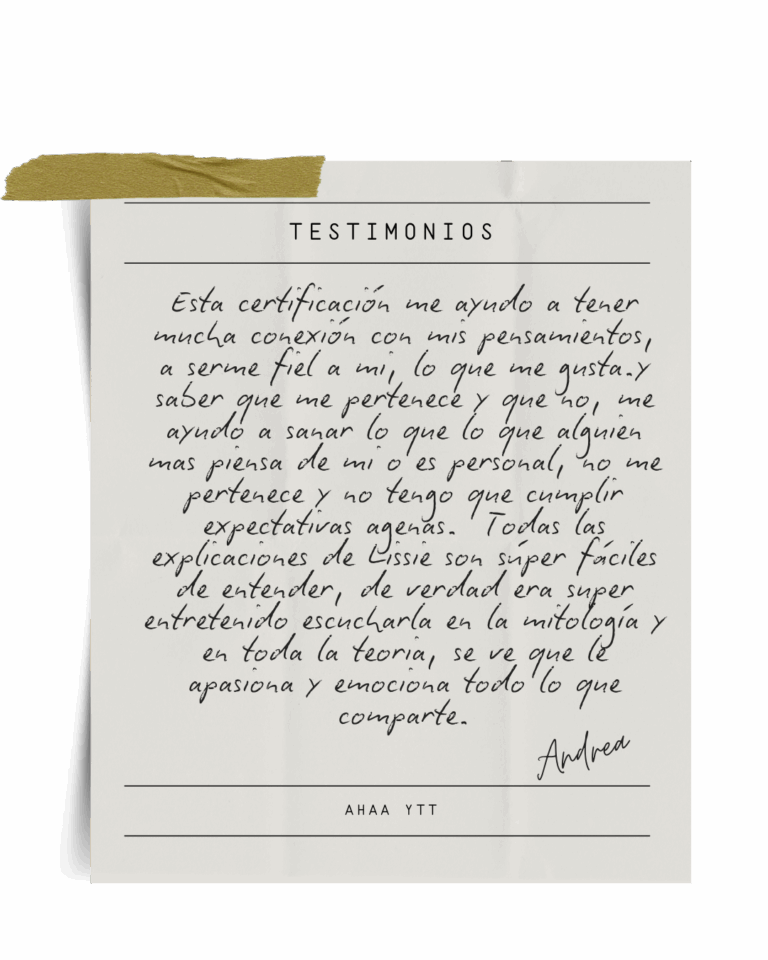 TESTIMONIOS
Esta certificación me ayudo a tener
mucha conexión con mis pensamientos,
a serme fiel a mi, lo que me gusta.y
saber que me pertenece y que no, me
ayudo a sanar lo que lo que alguien
mas piensa de mi o es personal, no me
pertenece y no tengo que cumplir
expectativas agenas. Todas las
explicaciones de Lissie son súper fáciles
de entender, de verdad era super
entretenido escucharla en la mitología y
en toda la teoria, se ve que le
apasiona y emociona todo lo que
comparte.
Andrea
AHAA YTT